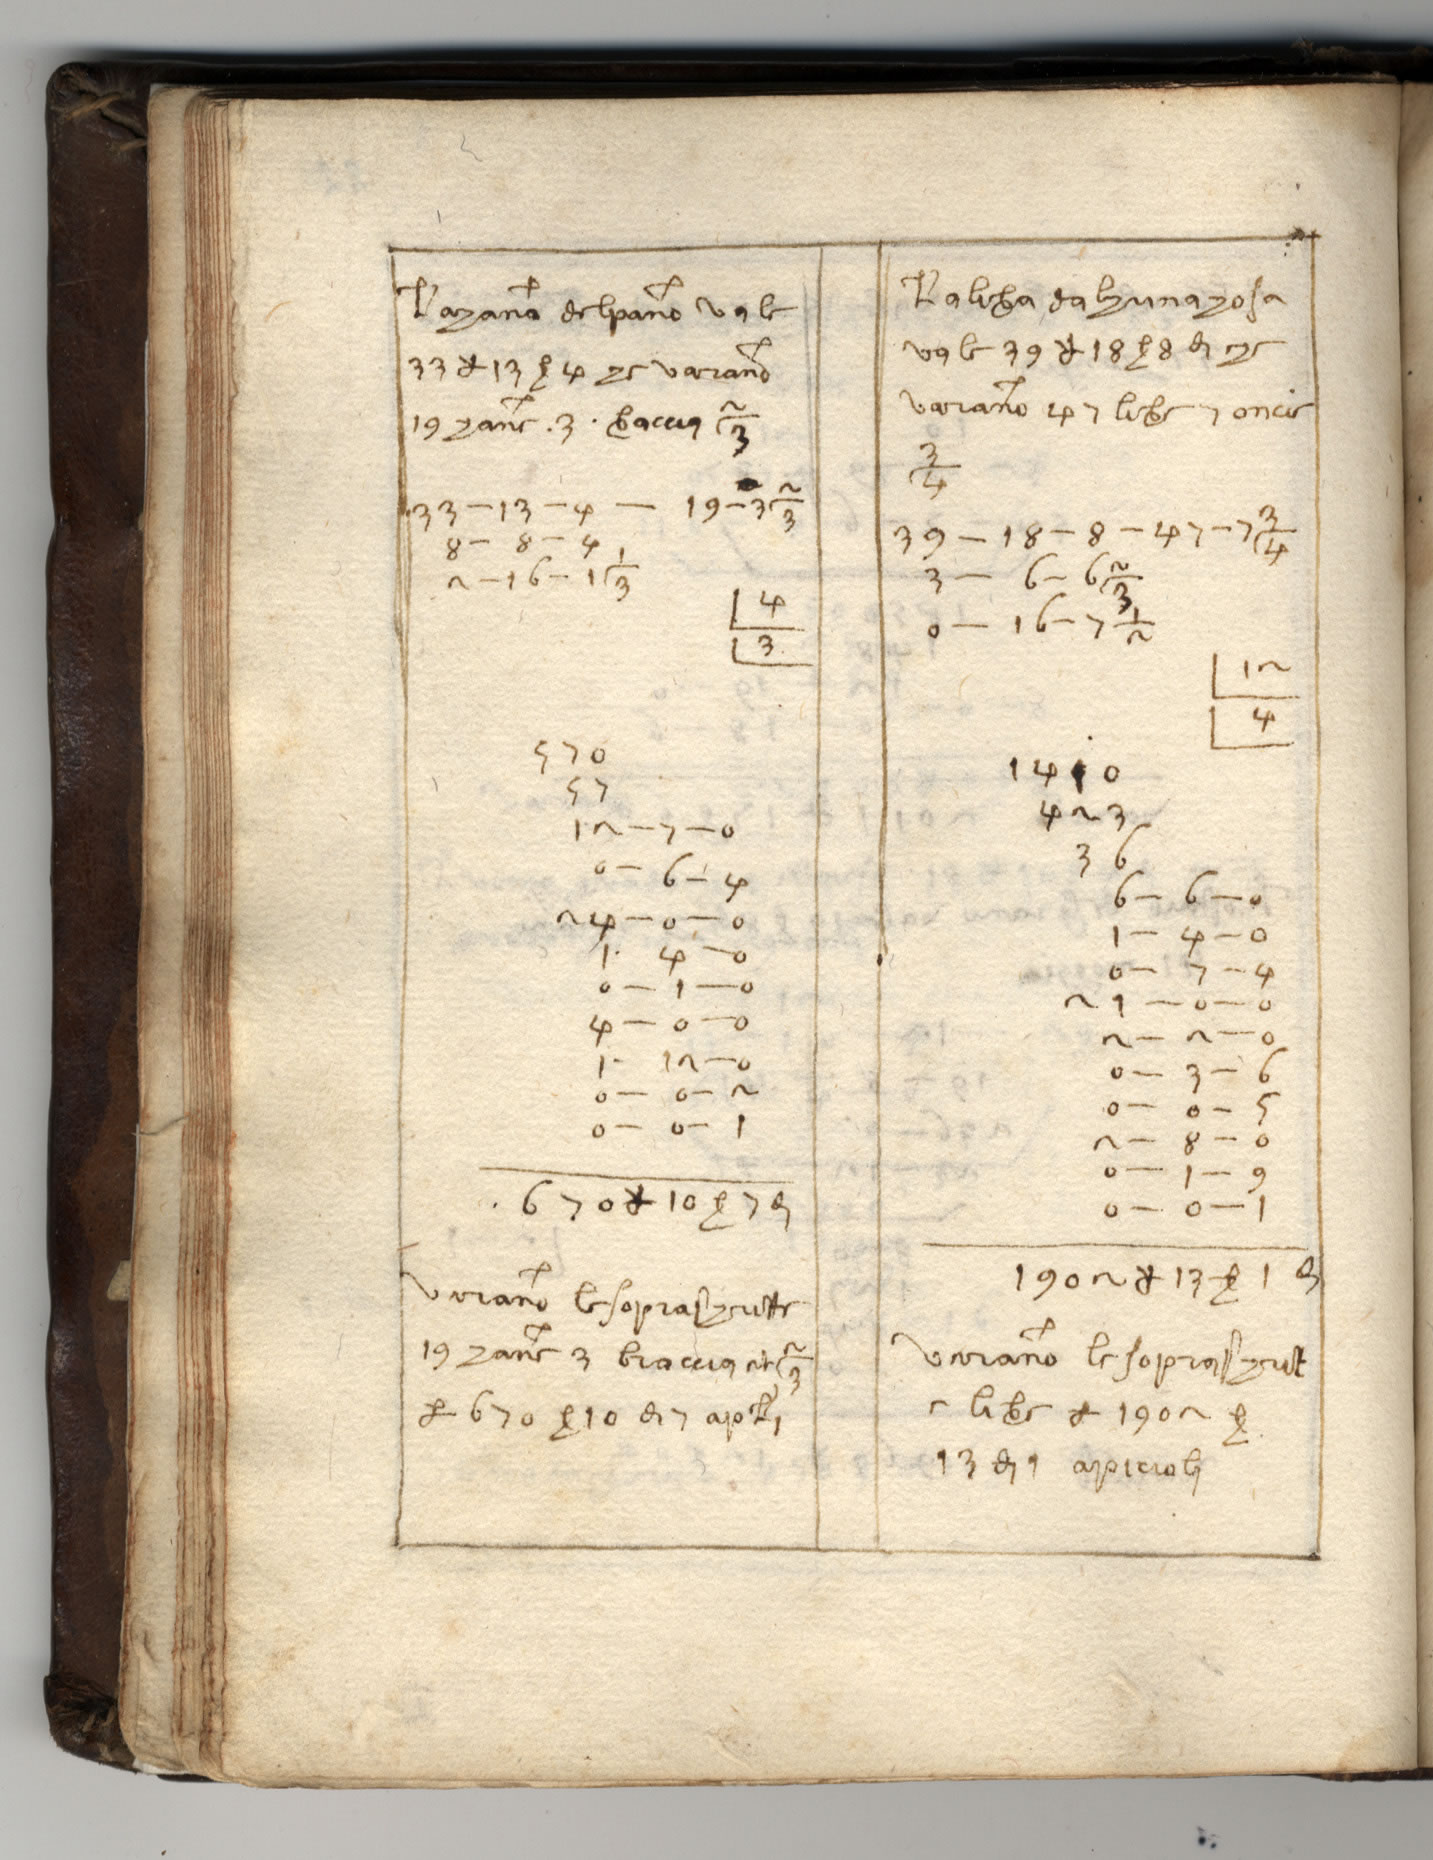 La channa del panno vale
33 ₰ 13 ß 4 che varanno
19 channe . 3 . braccia 2/3
33 — 13 — 4 — 19 — 3 2/3
8 — 8 — 4
2 — 16 — 1 1/3
4
3
570
57
12 — 7 — 0
0 — 6 — 4
24 — 0 — 0
1 · 4 — 0
0 — 1 — 0
4 — 0 — 0
1 · 12 — 0
0 — 0 — 2
0 — 0 — 1
670 ₰ 10 ß 7 d
varanno le sopra
19 channe 3 braccia et 2/3
₰ 670 ß 10 d 7 a
La libra
vale 39 ₰ 18 ß 8 d che
varanno 47 libre 7 oncie
3/4
39 — 18 — 8 — 47 — 7 3/4
3 — 6 — 6 2/3
0 — 16 — 7 1/2
12
4
1410
423
36
6 — 6 — 0
1 — 4 — 0
0 — 7 — 4
21 — 0 — 0
2 — 2 — 0
0 — 3 — 6
0 — 0 — 5
2 — 8 — 0
0 — 1 — 9
0 — 0 — 1
1902 ₰ 13 ß 1 d
varanno le sopra
e libre ₰ 1902 ß
13 d 1 a picioli